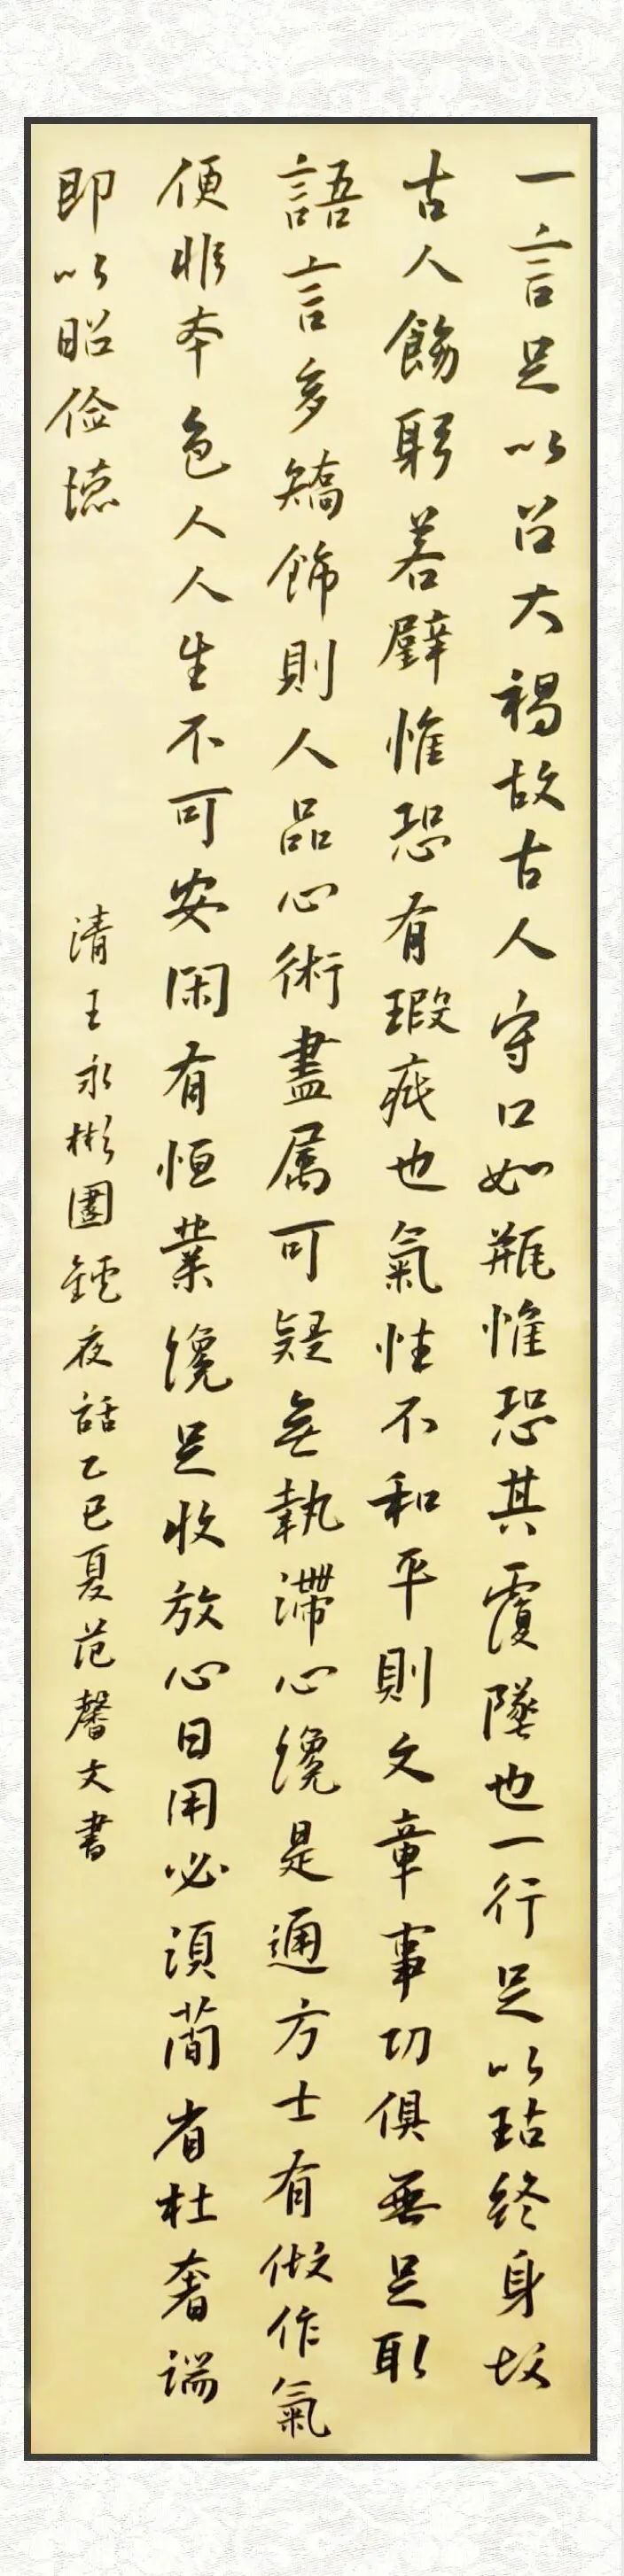 一言足以召大禍故古人守口如瓶惟恐其覆墜也一行足以玷終身故
古人飭躬若璧惟恐有瑕疵也氣性不和平則文章事功俱無足取
語言多矯飾則人品心術盡属可疑無執滯心纔是通方士有做作氣
便非本色人人生不可安閑有恒業纔足收放心日用必須簡省杜奢端
即以昭俭德
清王永彬圍鑪夜話乙巳夏范馨文書